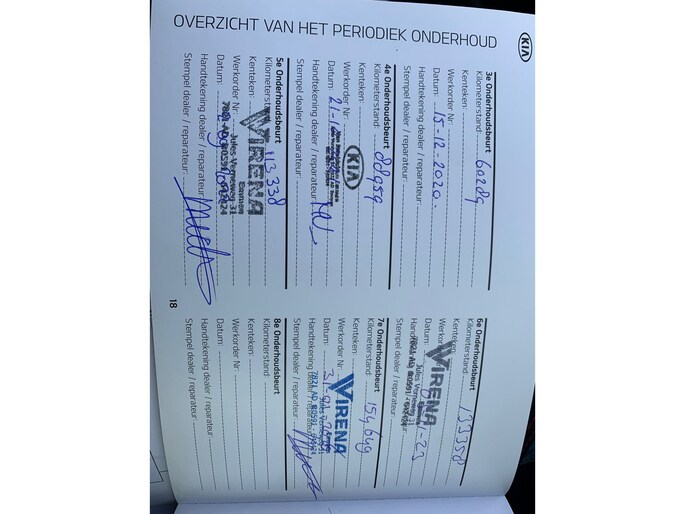 OVERZICHT VAN HET PERIODIEK ONDERHOUD
KIA
3e Onderhoudsbeurt
Kilometerstand: 60289
Kenteken:
Werkorder Nr.:
Datum: 15-12-2020.
Handtekening dealer / reparateur:
Stempel dealer / reparateur:
4e Onderhoudsbeurt
Kilometerstand: 88959
Kenteken:
Werkorder Nr.:
KIA
Datum: 21-1
Handtekening dealer / reparateur:
Stempel dealer / reparateur:
5e Onderhoudsbeurt
Kilometerstand: 113338
Kenteken:
VIRENA
Werkorder Nr.:
Emmen
Jules Verneweg 31
Datum:
7821 AD
Handtekening dealer / reparateur:
Stempel dealer / reparateur:
18
6e Onderhoudsbeurt
Kilometerstand: 133358
Kenteken:
VIRENA
Werkorder Nr.:
Jules Verneweg 31
Datum: 23
7821 AD
Handtekening dealer / reparateur:
Stempel dealer / reparateur:
7e Onderhoudsbeurt
Kilometerstand: 154649
Kenteken:
VIRENA
Werkorder Nr.:
Datum: 31
Jules Verneweg 31
7821 AD
Handtekening dealer / reparateur:
Stempel dealer / reparateur:
8e Onderhoudsbeurt
Kilometerstand:
Kenteken:
Werkorder Nr.:
Datum:
Handtekening dealer / reparateur:
Stempel dealer / reparateur: